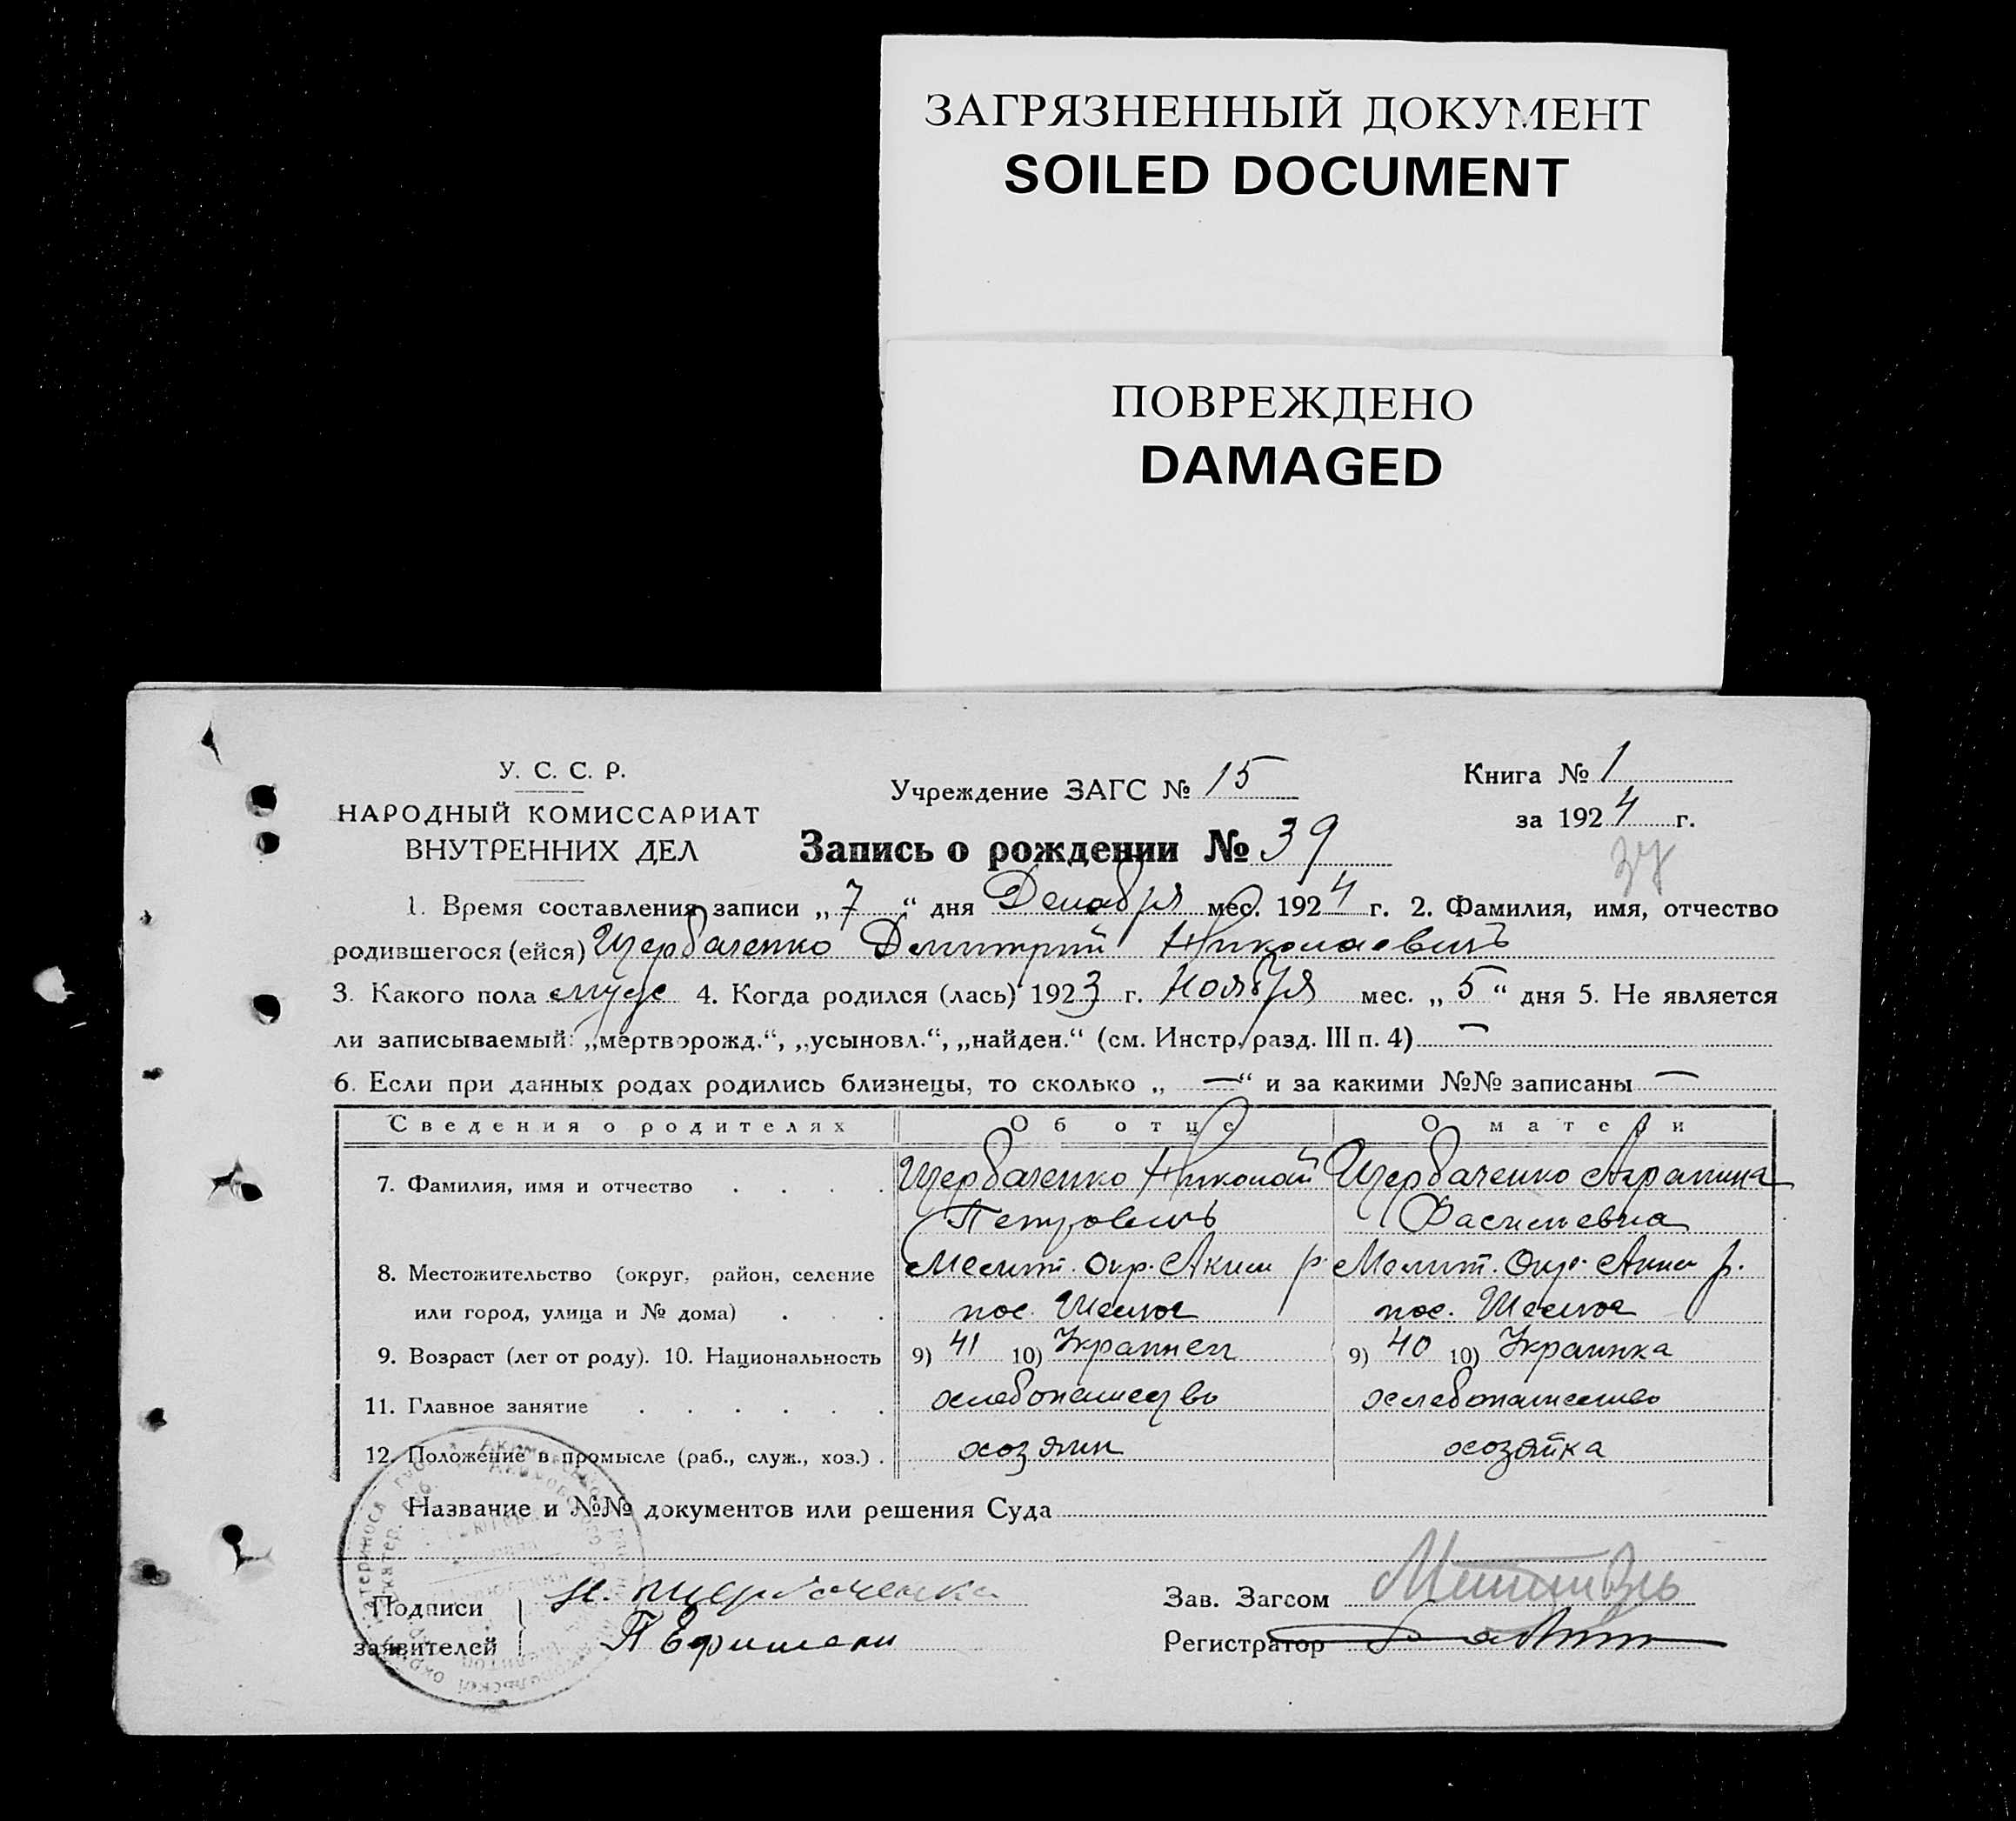 ЗАГРЯЗНЕННЫЙ ДОКУМЕНТ
SOILED DOCUMENT
ПОВРЕЖДЕНО
DAMAGED
У. С. С. Р.
НАРОДНЫЙ КОМИССАРИАТ
ВНУТРЕННИХ ДЕЛ
Учреждение ЗАГС № 15
Книга № 1
за 1924 г.
Запись о рождении № 39
37
1. Время составления записи „7“ дня Декабря мес. 1924 г. 2. Фамилия, имя, отчество
родившегося (ейся) Щербаченко Дмитрий Николаевичъ
3. Какого пола муж 4. Когда родился (лась) 1923 г. Ноября мес. „5“ дня 5. Не является
ли записываемый: „мертворожд.“, „усыновл.“, „найден.“ (см. Инстр. разд. III п. 4) —
6. Если при данных родах родились близнецы, то сколько „—“ и за какими №№ записаны —
Сведения о родителях Об отце О матери
7. Фамилия, имя и отчество Щербаченко Николай Щербаченко
Петровичъ
8. Местожительство (округ, район, селение Мелит. Окр. Аким р. Мелит. Окр. Аким р.
или город, улица и № дома) пос. пос.
9. Возраст (лет от роду). 10. Национальность 9) 41 10) Украинец 9) 40 10) Украинка
11. Главное занятие хлебопашество хлебопашество
12. Положение в промысле (раб., служ., хоз.) хозяин хозяйка
Название и №№ документов или решения Суда
Подписи Н. Щербаченко
заявителей
Зав. Загсом
Регистратор